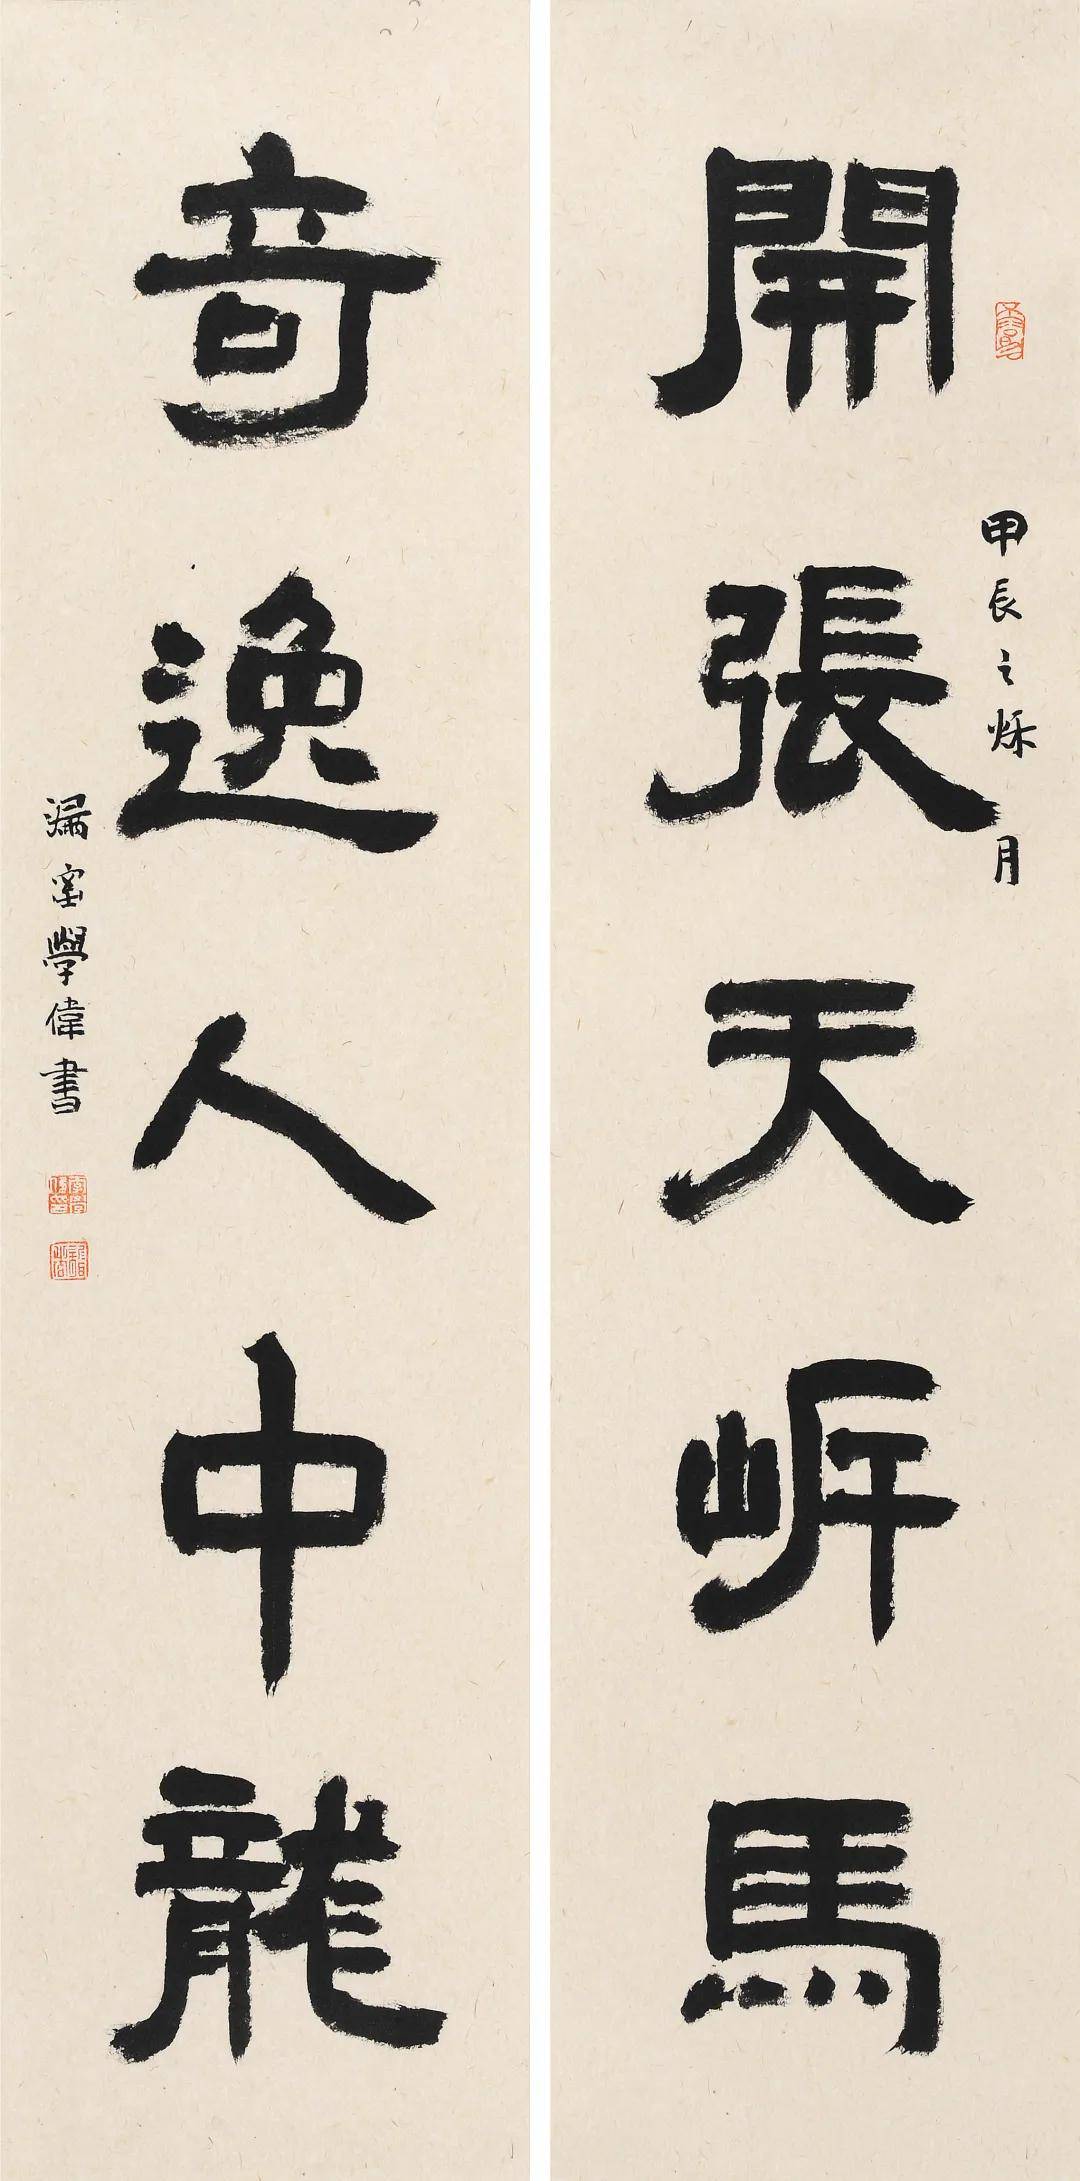 開張天岸馬
甲辰之秌月
奇逸人中龍
漏室學偉書